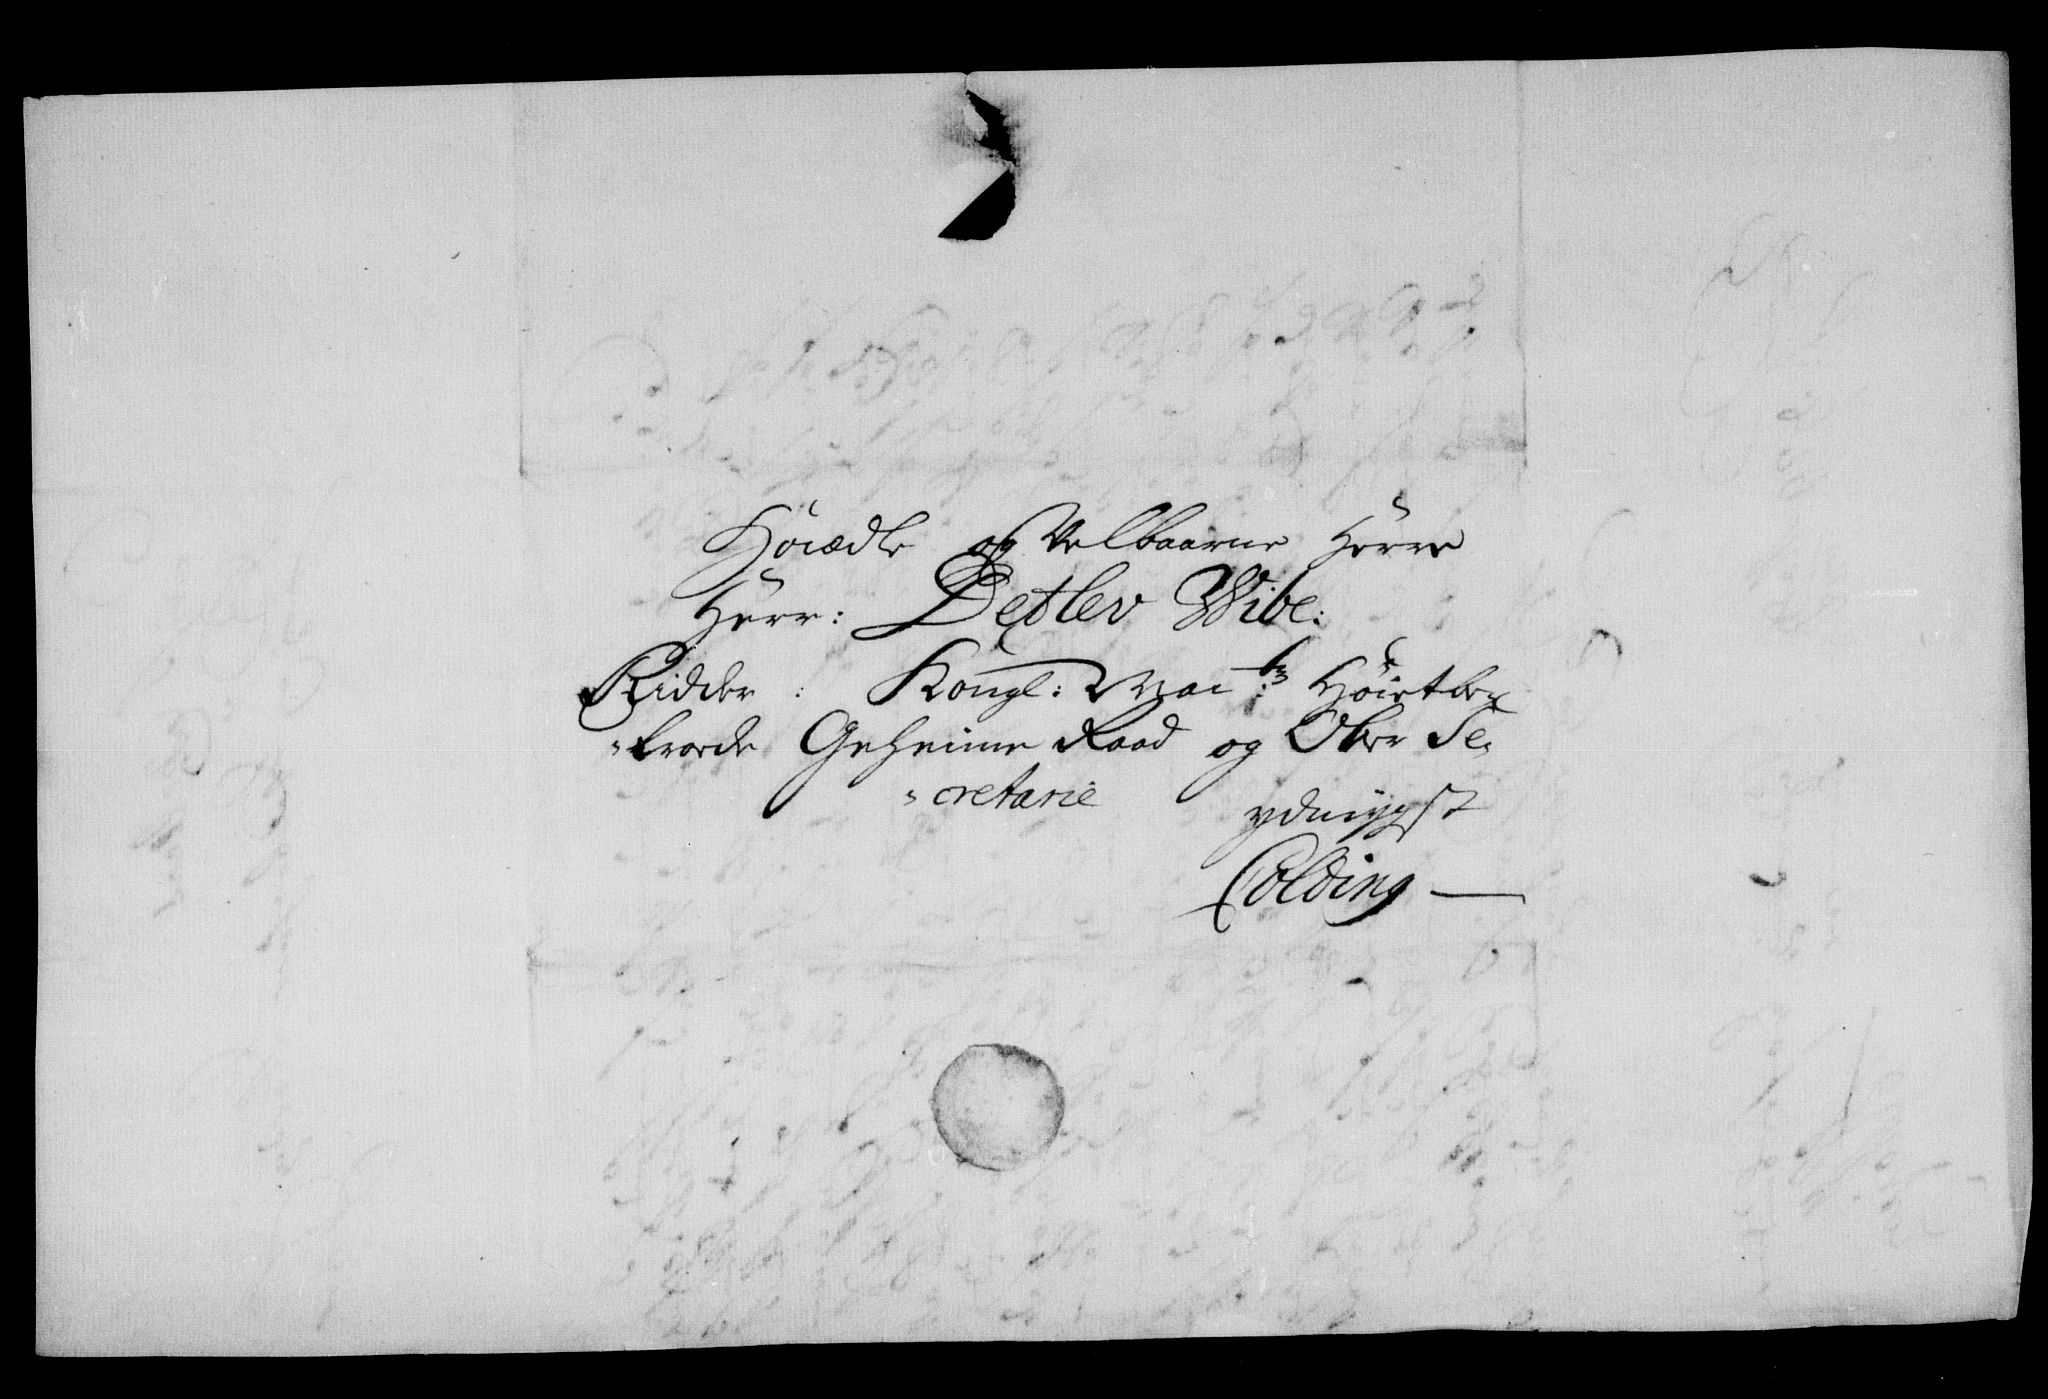 Höiædle og Velbaarne Herre
Herr: Detlev Wibe:
Ridder : Kongl: Mai^ts: Höietbe„
„troede Geheime Raad og Ober Se„
„cretarie
ydmygst
Colding —